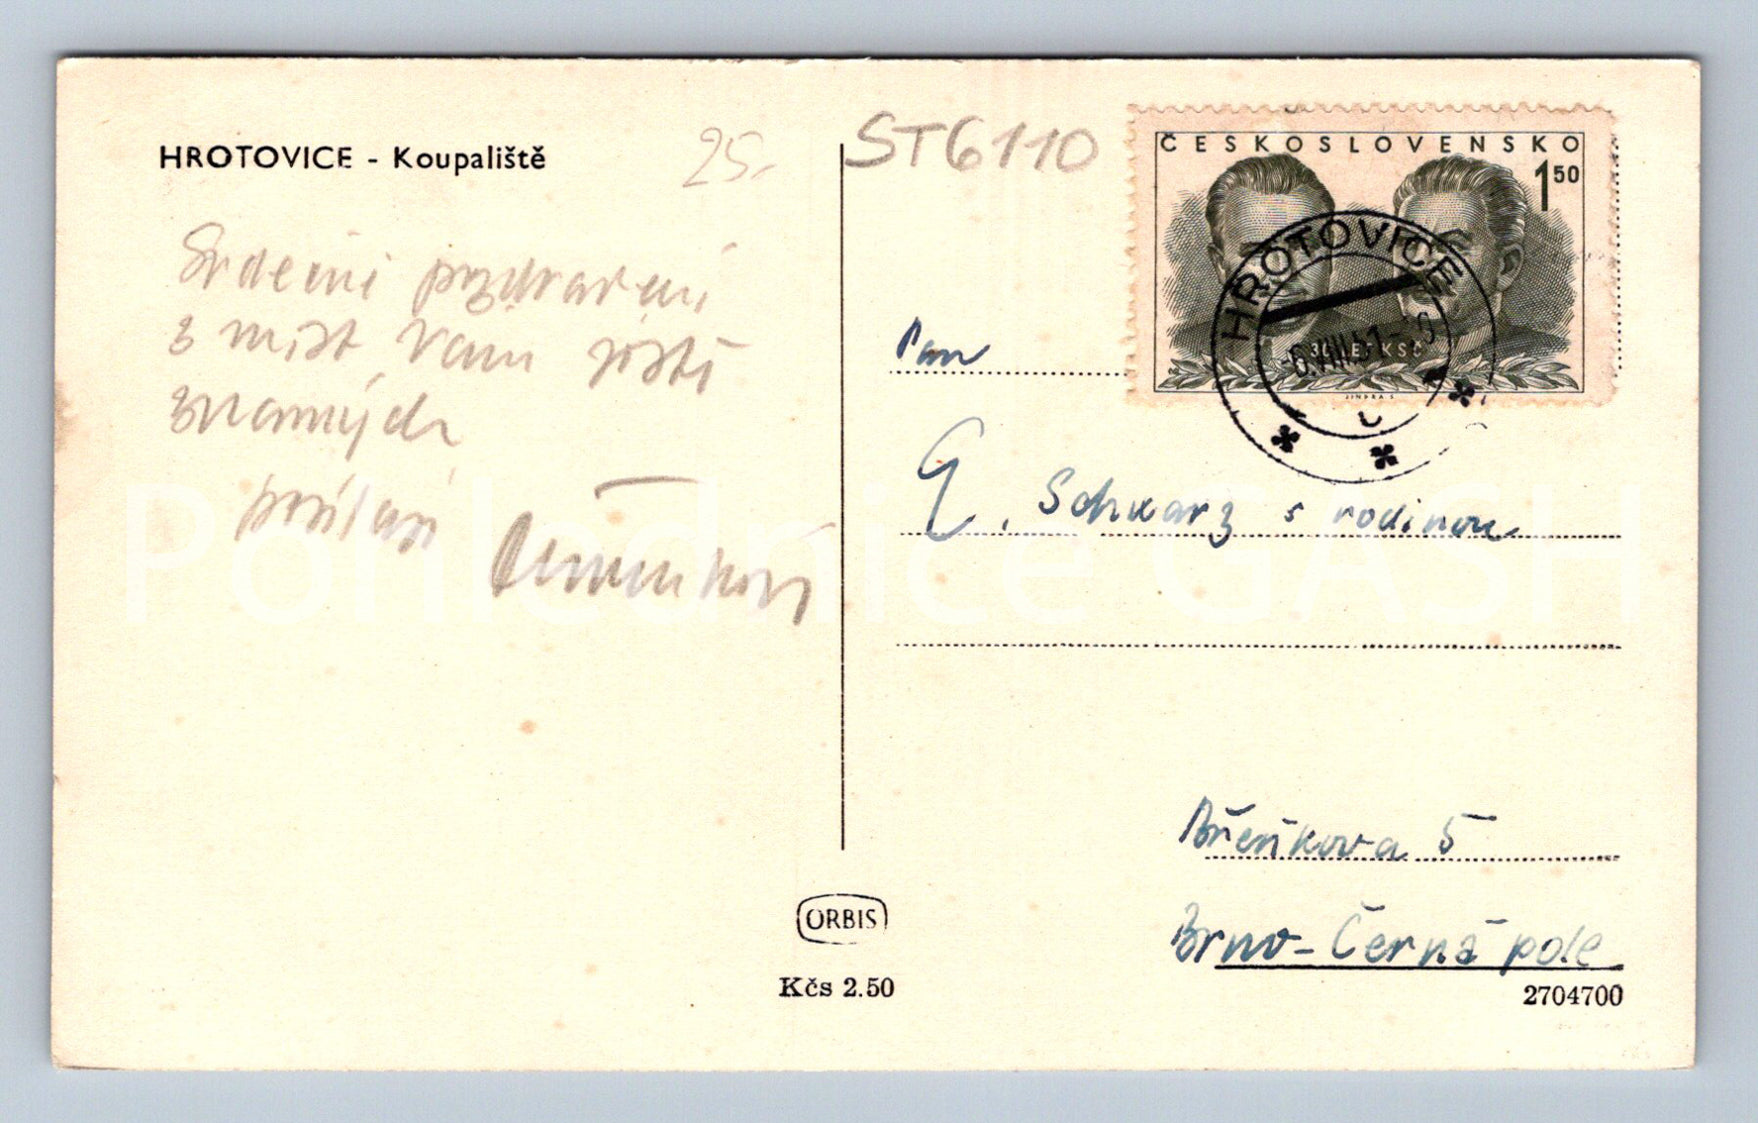 HROTOVICE - Koupaliště
25.-
ST6110
ČESKOSLOVENSKO
1 50
30 LET KSČ
JINDRA S.
HROTOVICE
6.VIII.51
Srdečné pozdravení
z míst Vám jistě
známých
posílají
Pan
G. Schwarz s rodinou
Brno-Černá pole
5
ORBIS
Kčs 2.50
2704700
Pohlednice GASH